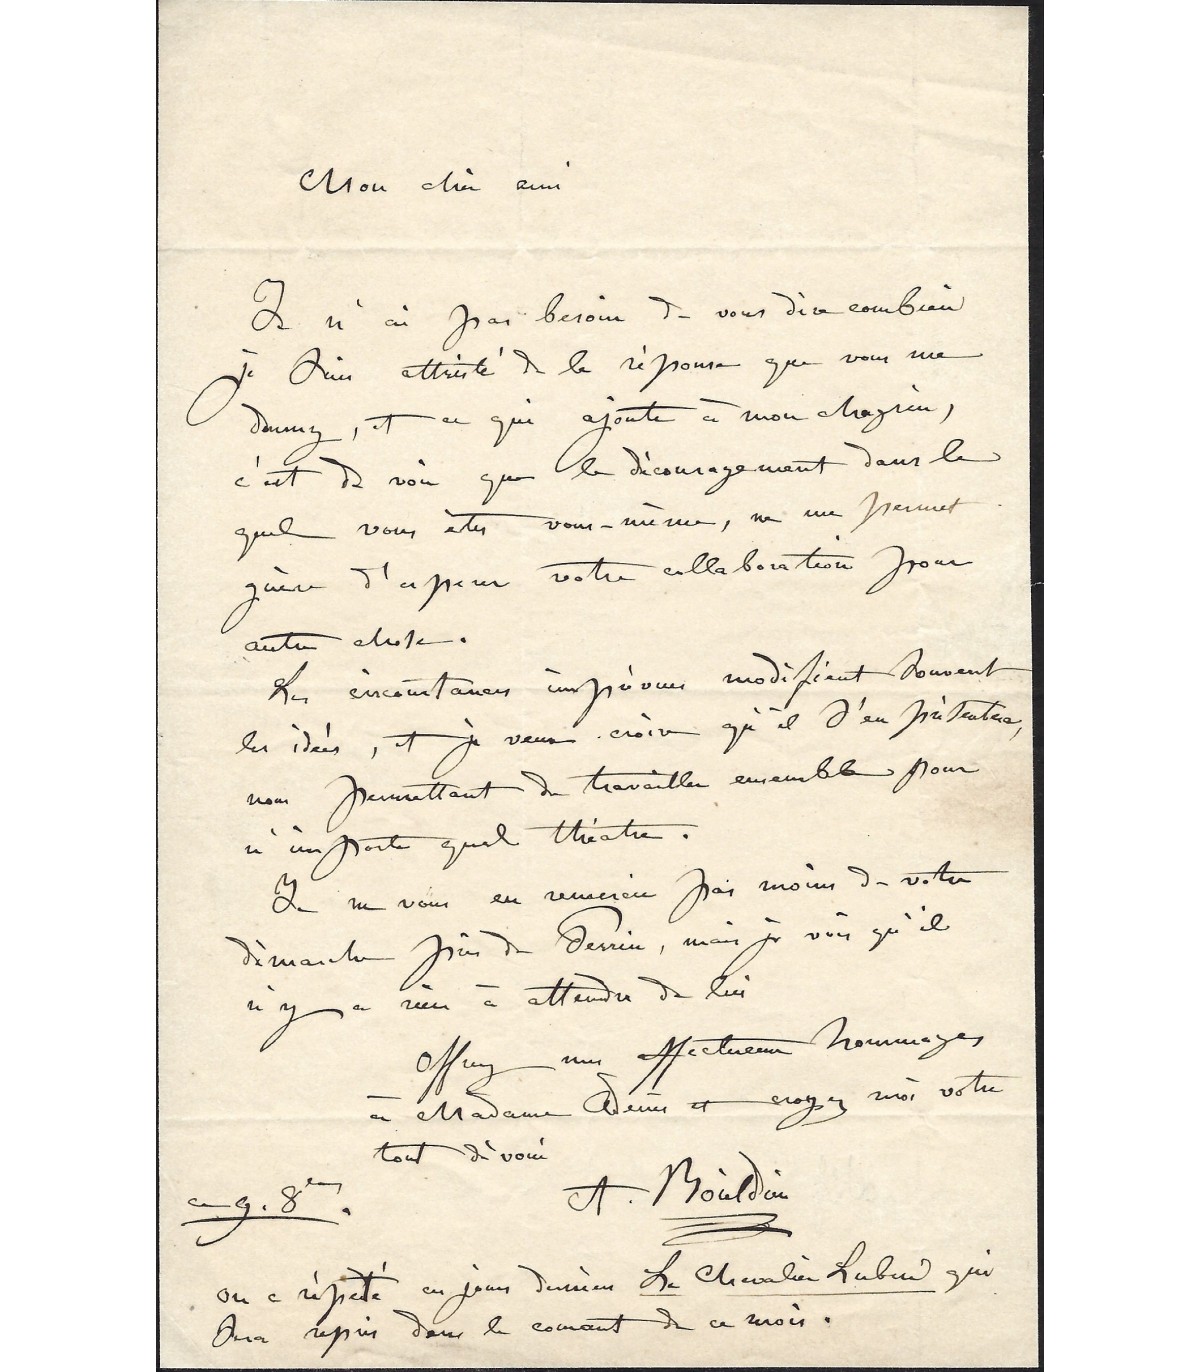 Mon cher ami
Je n'ai pas besoin de vous dire combien
je suis attristé de la réponse que vous me
donnez, et ce qui ajoute à mon chagrin,
c'est de voir que le découragement dans le
quel vous êtes vous-même, ne me permet
guère d'espérer votre collaboration pour
autre chose.
Les circonstances imprévues modifient souvent
les idées, et je veux croire qu'il s'en présentera,
nous permettant de travailler ensemble pour
n'importe quel théâtre.
Je ne vous en remercie pas moins de votre
démarche près de Perrin, mais je vois qu'il
n'y a rien à attendre de lui
Offrez mes affectueux hommages
à Madame Adénis et croyez moi votre
tout dévoué
A. Boieldieu
ce 9. 8bre.
on a répété ces jours derniers Le Chevalier Lubin qui
sera repris dans le courant de ce mois.